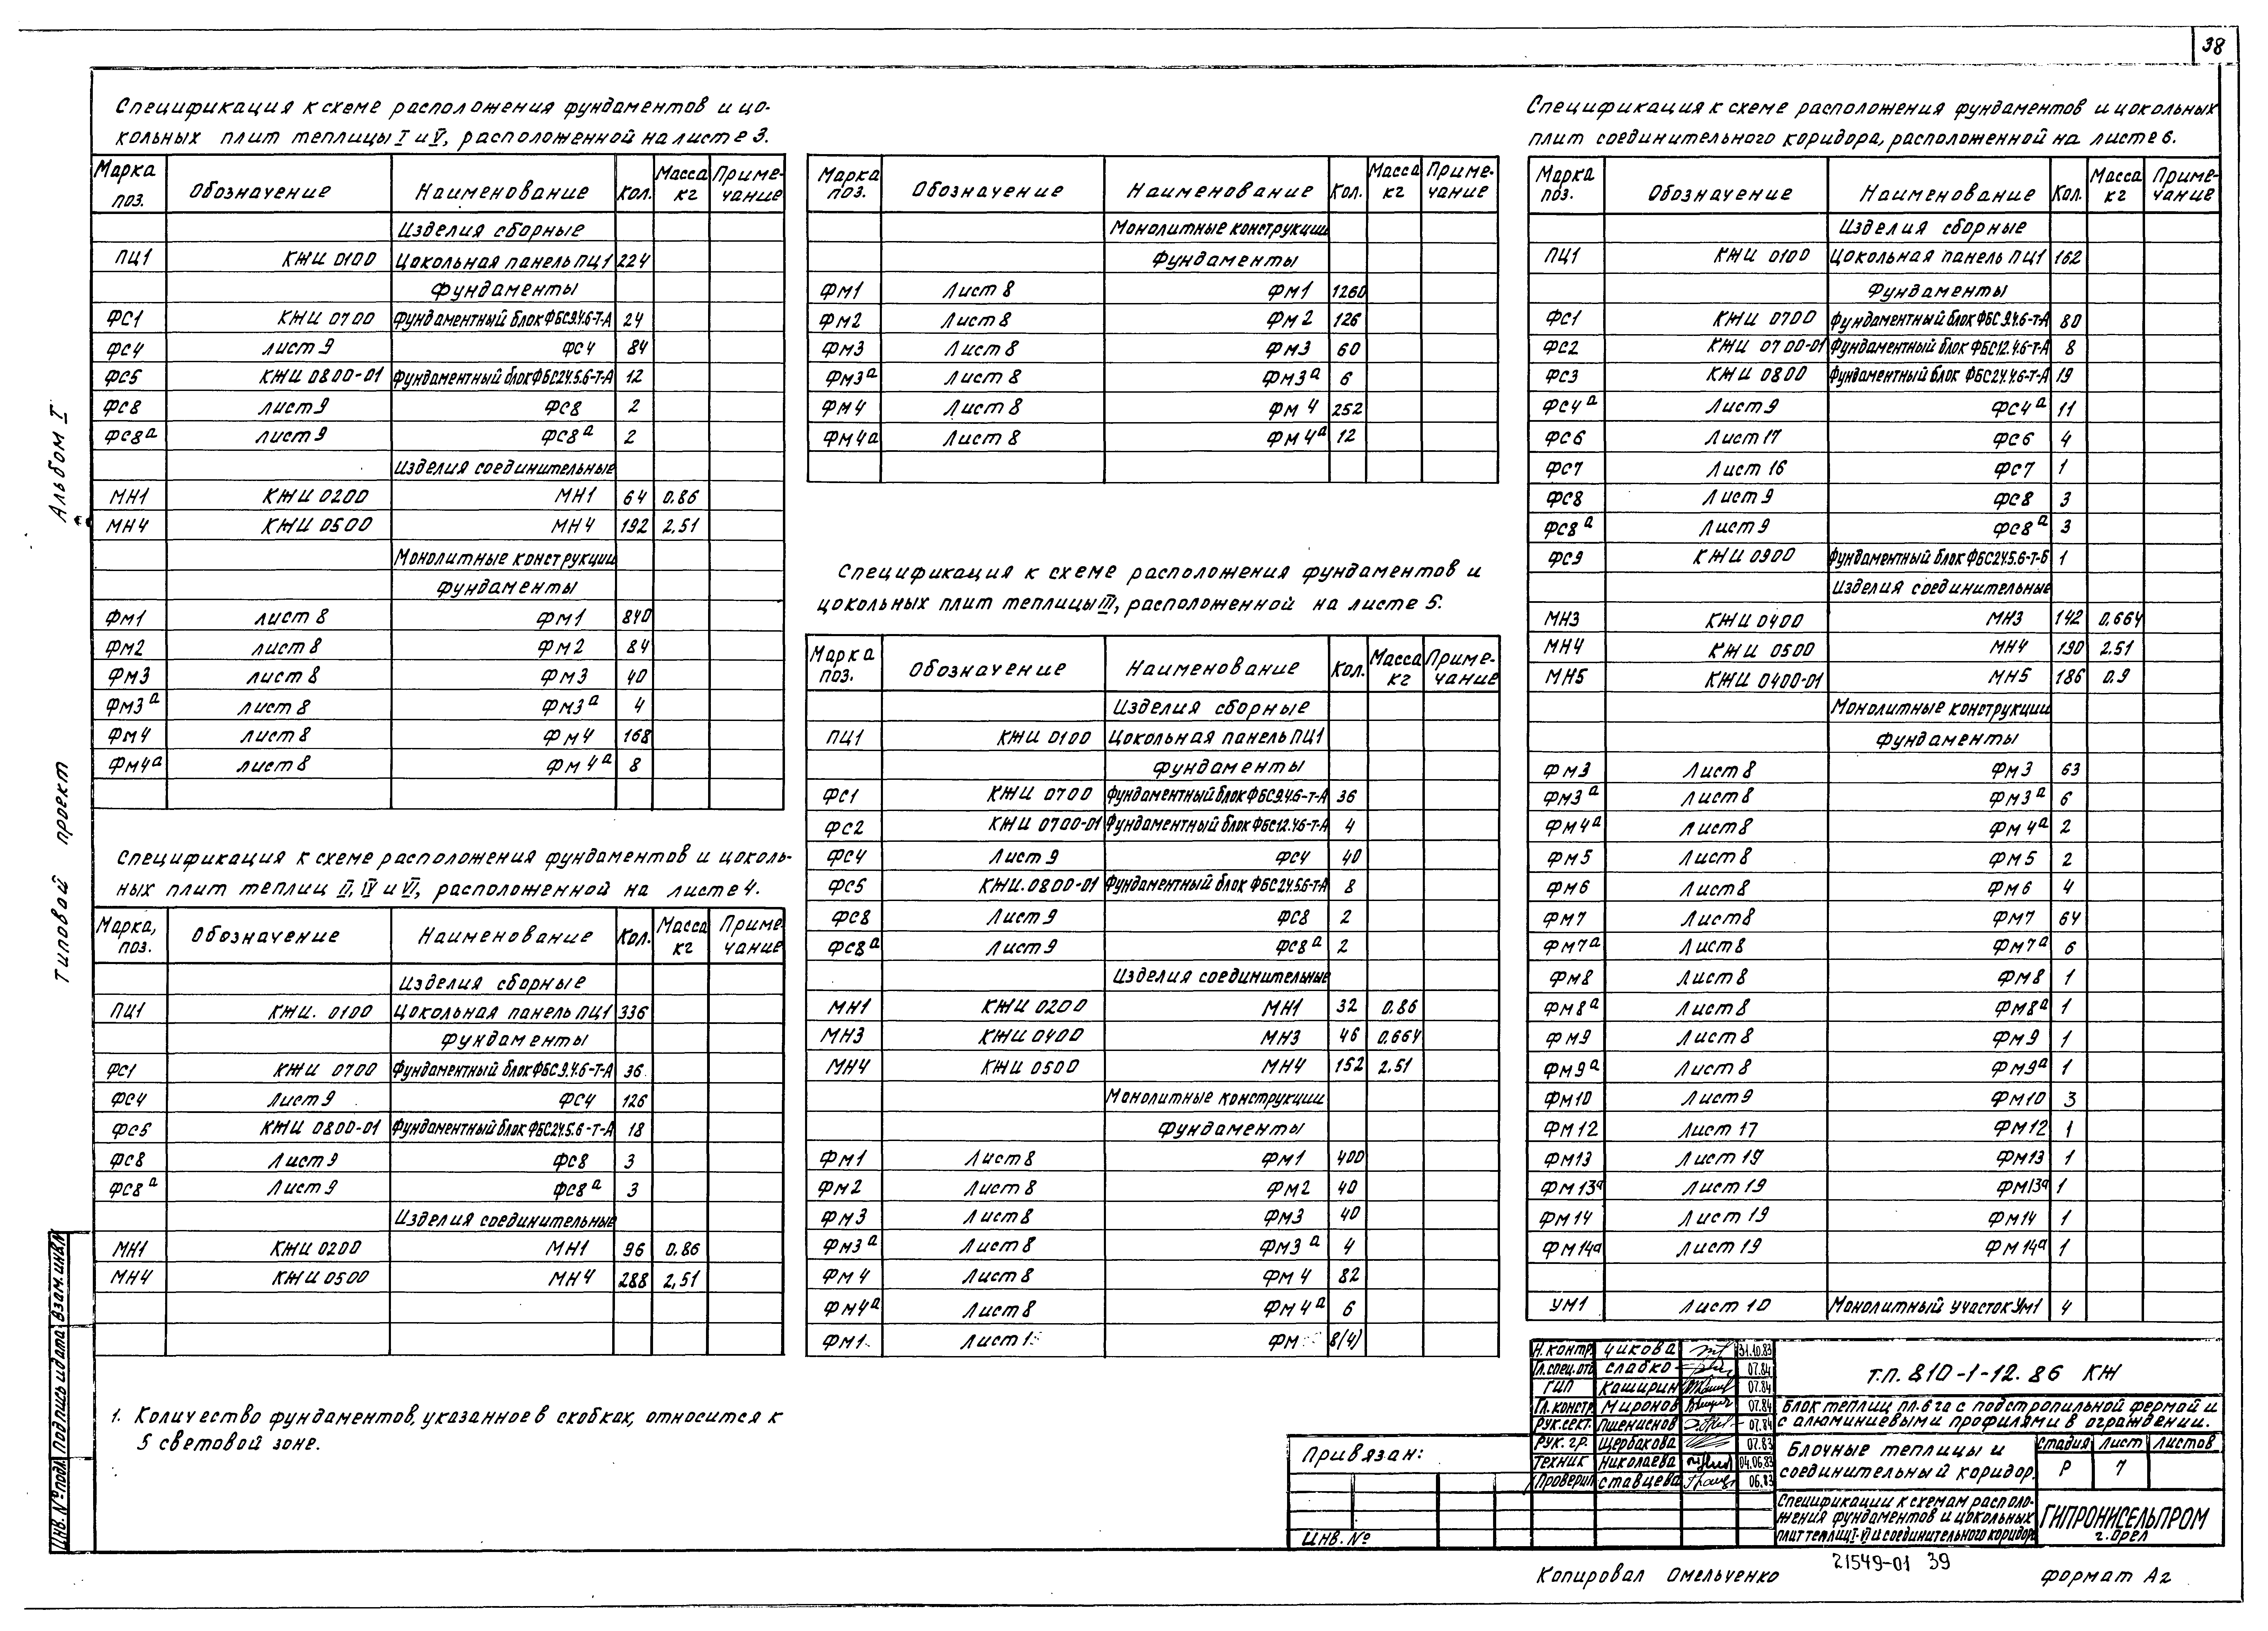 38
Альбом I
Типовой проект
Инв. № подл. Подпись и дата Взам. инв. №
Спецификация к схеме расположения фундаментов и цо-
кольных плит теплицы I и V, расположенной на листе 3.
Марка поз. Обозначение Наименование Кол. Масса кг Приме-чание
Изделия сборные
ПЦ1 КЖИ 0100 Цокольная панель ПЦ1 224
Фундаменты
ФС1 КЖИ 0700 Фундаментный блок ФБС9.4.6-Т-А 24
ФС4 лист 9 ФС4 84
ФС5 КЖИ 0800-01 Фундаментный блок ФБС24.5.6-Т-А 12
ФС8 лист 9 ФС8 2
ФС8а лист 9 ФС8а 2
Изделия соединительные
МН1 КЖИ 0200 МН1 64 0.86
МН4 КЖИ 0500 МН4 192 2.51
Монолитные конструкции
Фундаменты
ФМ1 лист 8 ФМ1 840
ФМ2 лист 8 ФМ2 84
ФМ3 лист 8 ФМ3 40
ФМ3а лист 8 ФМ3а 4
ФМ4 лист 8 ФМ4 168
ФМ4а лист 8 ФМ4а 8
Спецификация к схеме расположения фундаментов и цоколь-
ных плит теплиц II, IV и VI, расположенной на листе 4.
Марка, поз. Обозначение Наименование Кол. Масса кг Приме-чание
Изделия сборные
ПЦ1 КЖИ. 0100 Цокольная панель ПЦ1 336
Фундаменты
ФС1 КЖИ 0700 Фундаментный блок ФБС9.4.6-Т-А 36
ФС4 Лист 9 ФС4 126
ФС5 КЖИ 0800-01 Фундаментный блок ФБС24.5.6-Т-А 18
ФС8 Лист 9 ФС8 3
ФС8а Лист 9 ФС8а 3
Изделия соединительные
МН1 КЖИ 0200 МН1 96 0.86
МН4 КЖИ 0500 МН4 288 2,51
1. Количество фундаментов, указанное в скобках, относится к
5 световой зоне.
Марка поз. Обозначение Наименование Кол. Масса кг Приме-чание
Монолитные конструкции
Фундаменты
ФМ1 Лист 8 ФМ1 1260
ФМ2 Лист 8 ФМ2 126
ФМ3 Лист 8 ФМ3 60
ФМ3а Лист 8 ФМ3а 6
ФМ4 Лист 8 ФМ4 252
ФМ4а Лист 8 ФМ4а 12
Спецификация к схеме расположения фундаментов и
цокольных плит теплицы III, расположенной на листе 5.
Марка поз. Обозначение Наименование Кол. Масса кг Приме-чание
Изделия сборные
ПЦ1 КЖИ 0100 Цокольная панель ПЦ1
Фундаменты
ФС1 КЖИ 0700 Фундаментный блок ФБС9.4.6-Т-А 36
ФС2 КЖИ 0700-01 Фундаментный блок ФБС12.4.6-Т-А 4
ФС4 Лист 9 ФС4 40
ФС5 КЖИ.0800-01 Фундаментный блок ФБС24.5.6-Т-А 8
ФС8 Лист 9 ФС8 2
ФС8а Лист 9 ФС8а 2
Изделия соединительные
МН1 КЖИ 0200 МН1 32 0.86
МН3 КЖИ 0400 МН3 46 0.664
МН4 КЖИ 0500 МН4 152 2.51
Монолитные конструкции
Фундаменты
ФМ1 Лист 8 ФМ1 400
ФМ2 Лист 8 ФМ2 40
ФМ3 Лист 8 ФМ3 40
ФМ3а Лист 8 ФМ3а 4
ФМ4 Лист 8 ФМ4 82
ФМ4а Лист 8 ФМ4а 6
ФМ1 Лист 1 ФМ 8(4)
Спецификация к схеме расположения фундаментов и цокольных
плит соединительного коридора, расположенной на листе 6.
Марка поз. Обозначение Наименование Кол. Масса кг Приме-чание
Изделия сборные
ПЦ1 КЖИ 0100 Цокольная панель ПЦ1 162
Фундаменты
ФС1 КЖИ 0700 Фундаментный блок ФБС9.4.6-Т-А 80
ФС2 КЖИ 0700-01 Фундаментный блок ФБС12.4.6-Т-А 8
ФС3 КЖИ 0800 Фундаментный блок ФБС24.4.6-Т-А 19
ФС4а Лист 9 ФС4а 11
ФС6 Лист 17 ФС6 4
ФС7 Лист 16 ФС7 1
ФС8 Лист 9 ФС8 3
ФС8а Лист 9 ФС8а 3
ФС9 КЖИ 0900 Фундаментный блок ФБС24.5.6-Т-Б 1
Изделия соединительные
МН3 КЖИ 0400 МН3 142 0.664
МН4 КЖИ 0500 МН4 190 2.51
МН5 КЖИ 0400-01 МН5 186 0.9
Монолитные конструкции
Фундаменты
ФМ3 Лист 8 ФМ3 63
ФМ3а Лист 8 ФМ3а 6
ФМ4а Лист 8 ФМ4а 2
ФМ5 Лист 8 ФМ5 2
ФМ6 Лист 8 ФМ6 4
ФМ7 Лист 8 ФМ7 64
ФМ7а Лист 8 ФМ7а 6
ФМ8 Лист 8 ФМ8 1
ФМ8а Лист 8 ФМ8а 1
ФМ9 Лист 8 ФМ9 1
ФМ9а Лист 8 ФМ9а 1
ФМ10 Лист 9 ФМ10 3
ФМ12 Лист 17 ФМ12 1
ФМ13 Лист 19 ФМ13 1
ФМ13а Лист 19 ФМ13а 1
ФМ14 Лист 19 ФМ14 1
ФМ14а Лист 19 ФМ14а 1
УМ1 Лист 10 Монолитный участок УМ1 4
Привязан:
Инв. №
Н. контр. Чикова 31.10.83
Гл. спец. отд Слабко 07.84
ГИП Каширин 07.84
Гл. констр. Миронов 07.84
Рук. сект. Пшениснов 07.84
Рук. гр. Щербакова 07.83
Техник Николаева 04.06.83
Проверил Ставцева 06.83
Т.П. 810-1-12.86 КЖ
Блок теплиц пл. 6 га с подстропильной фермой и
с алюминиевыми профилями в ограждении.
Блочные теплицы и
соединительный коридор.
Стадия Лист Листов
Р 7
Спецификации к схемам располо-
жения фундаментов и цокольных
плит теплиц I-VI и соединительного коридора
ГИПРОНИСЕЛЬПРОМ
г. Орел
21549-01 39
Копировал Омельченко
Формат А2